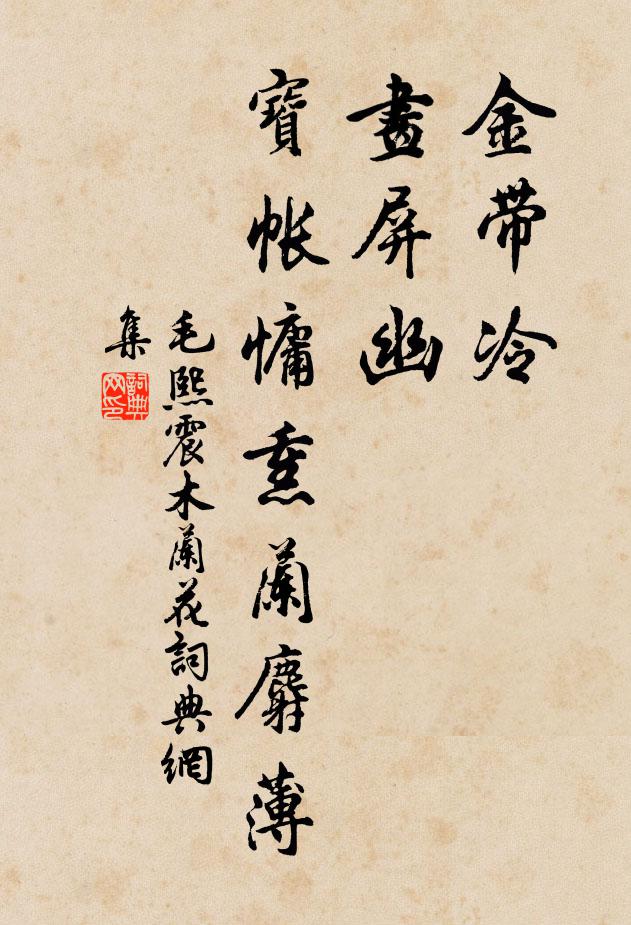 金帶冷
畫屏幽
寶帳慵熏蘭麝薄
毛熙震木蘭花詞典網
集
詞典
网印